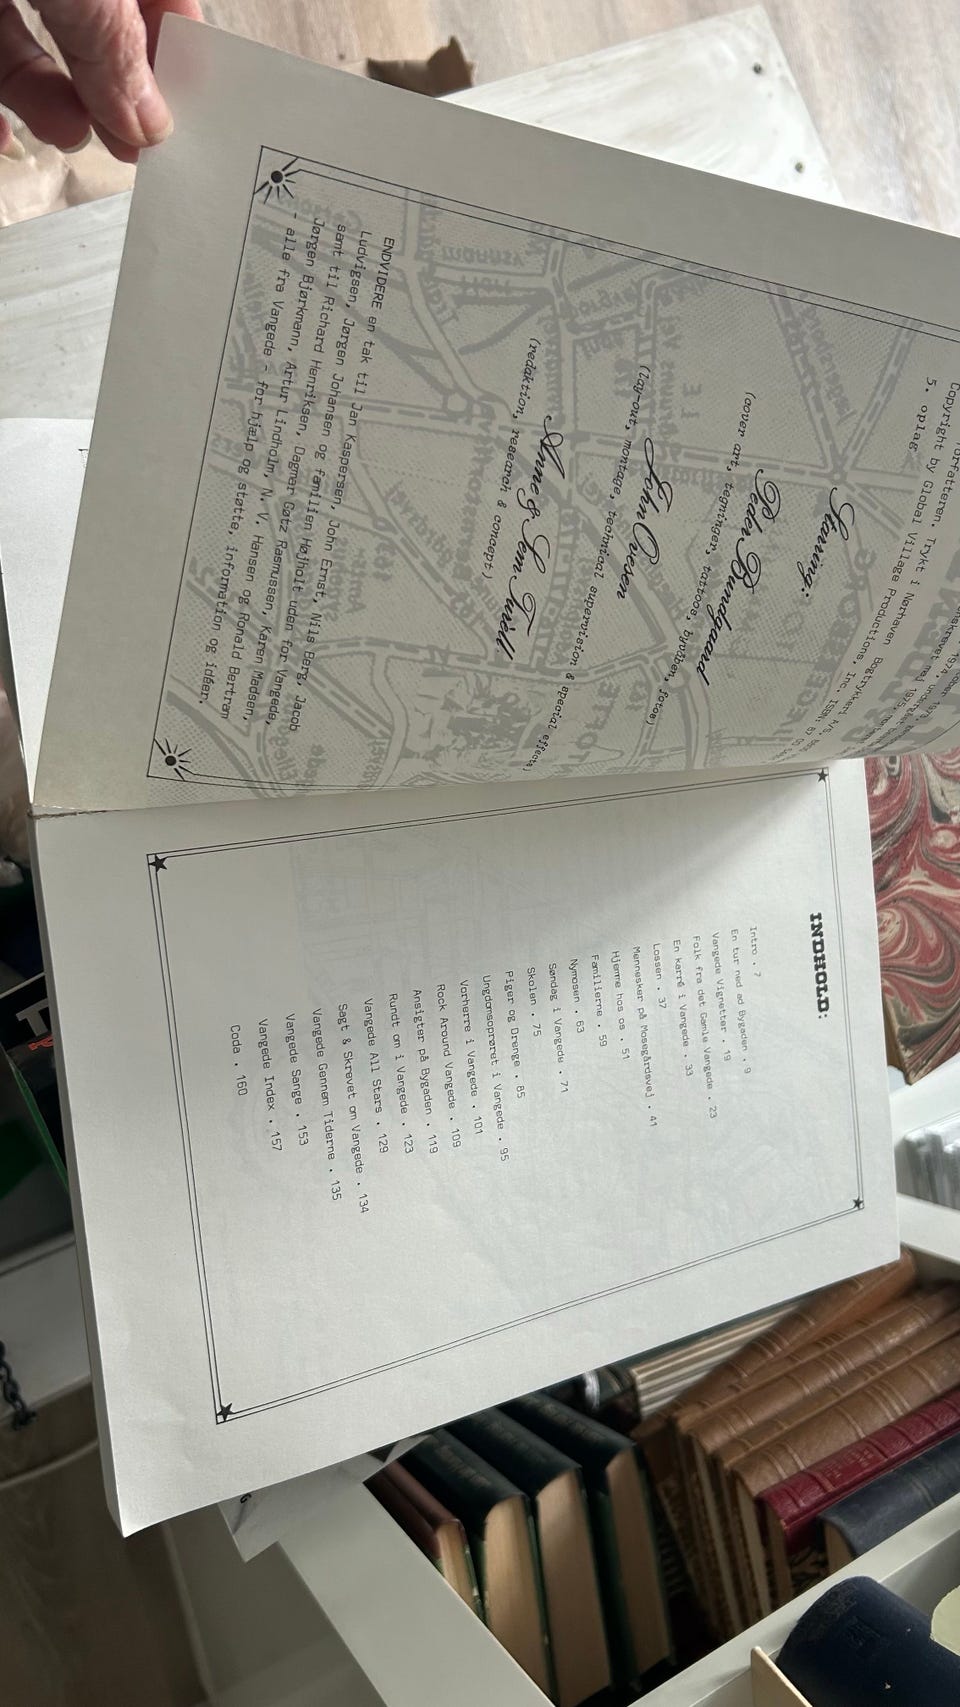 1974.
Copyright by Global Village Productions, Inc. ISBN: 87
5. oplag
Starring:
Peder Bundgaard
(cover art, tegninger, tattoos, byvåben, fotos)
John Ovesen
(lay-out, montage, technical supervision & special effects)
Anne & Lem Turèll
(redaktion, research & concept)
ENDVIDERE en tak til Jan Kaspersen, John Ernst, Nils Berg, Jacob
Ludvigsen, Jørgen Johansen og familien Højholt uden for Vangede,
samt til Richard Henriksen, Dagmar Gøtz Rasmussen, Karen Madsen,
Jørgen Bjørkmann, Artur Lindholm, N.V. Hansen og Ronald Bertram
- alle fra Vangede - for hjælp og støtte, information og idéer.
INDHOLD:
Intro . 7
En tur ned ad Bygaden . 9
Vangede Vignetter . 19
Folk fra det Gamle Vangede . 23
En karré i Vangede . 33
Lossen . 37
Mennesker på Mosegårdsvej . 41
Hjemme hos os . 51
Familierne . 59
Nymosen . 63
Søndag i Vangede . 71
Skolen . 75
Piger og Drenge . 85
Ungdomsoprøret i Vangede . 95
Vorherre i Vangede . 101
Rock Around Vangede . 109
Ansigter på Bygaden . 119
Rundt om i Vangede . 123
Vangede All Stars . 129
Sagt & Skrevet om Vangede . 134
Vangede Gennem Tiderne . 135
Vangede Sange . 153
Vangede Index . 157
Coda . 160